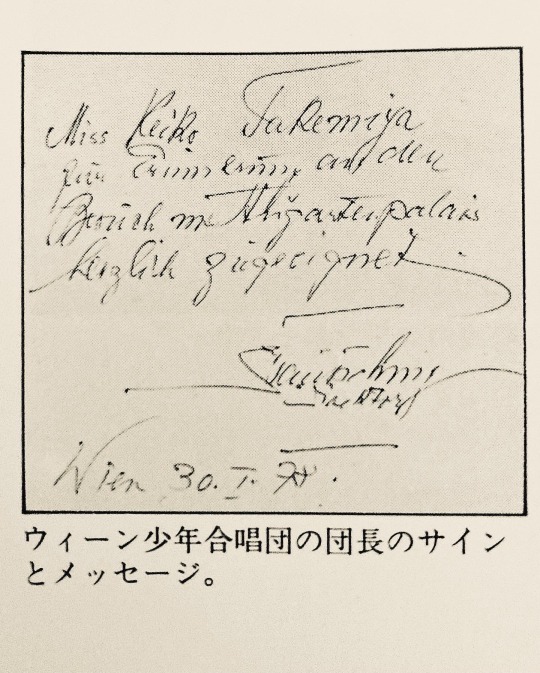 Miss Keiko Takemiya
zur Erinnerung an den
Besuch im Augartenpalais
herzlich zugeeignet
Wien 30. I. 78.
ウィーン少年合唱団の団長のサイン
とメッセージ。